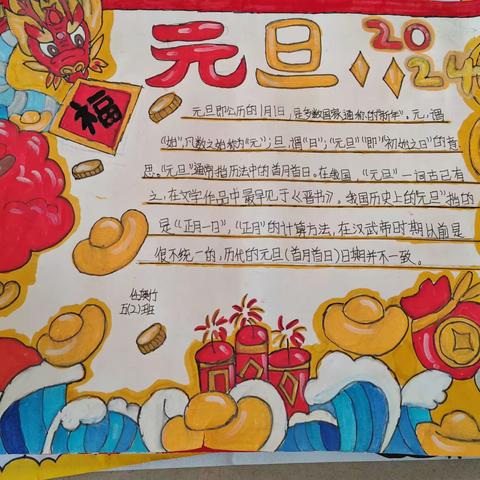 元旦
20
24
福
元旦即公历的1月1日，是多数国家通称的"新年"。元，谓
"始"，凡数之始称为"元"；旦，谓"日"；"元旦"即"初始之日"的意
思。"元旦"通常指历法中的首月首日。在我国，"元旦"一词古已有
之，在文学作品中最早见于《晋书》。我国历史上的"元旦"指的
是"正月一日"，"正月"的计算方法，在汉武帝时期以前是
很不统一的，历代的元旦(首月首日)日期并不一致。
竹
五(2)班